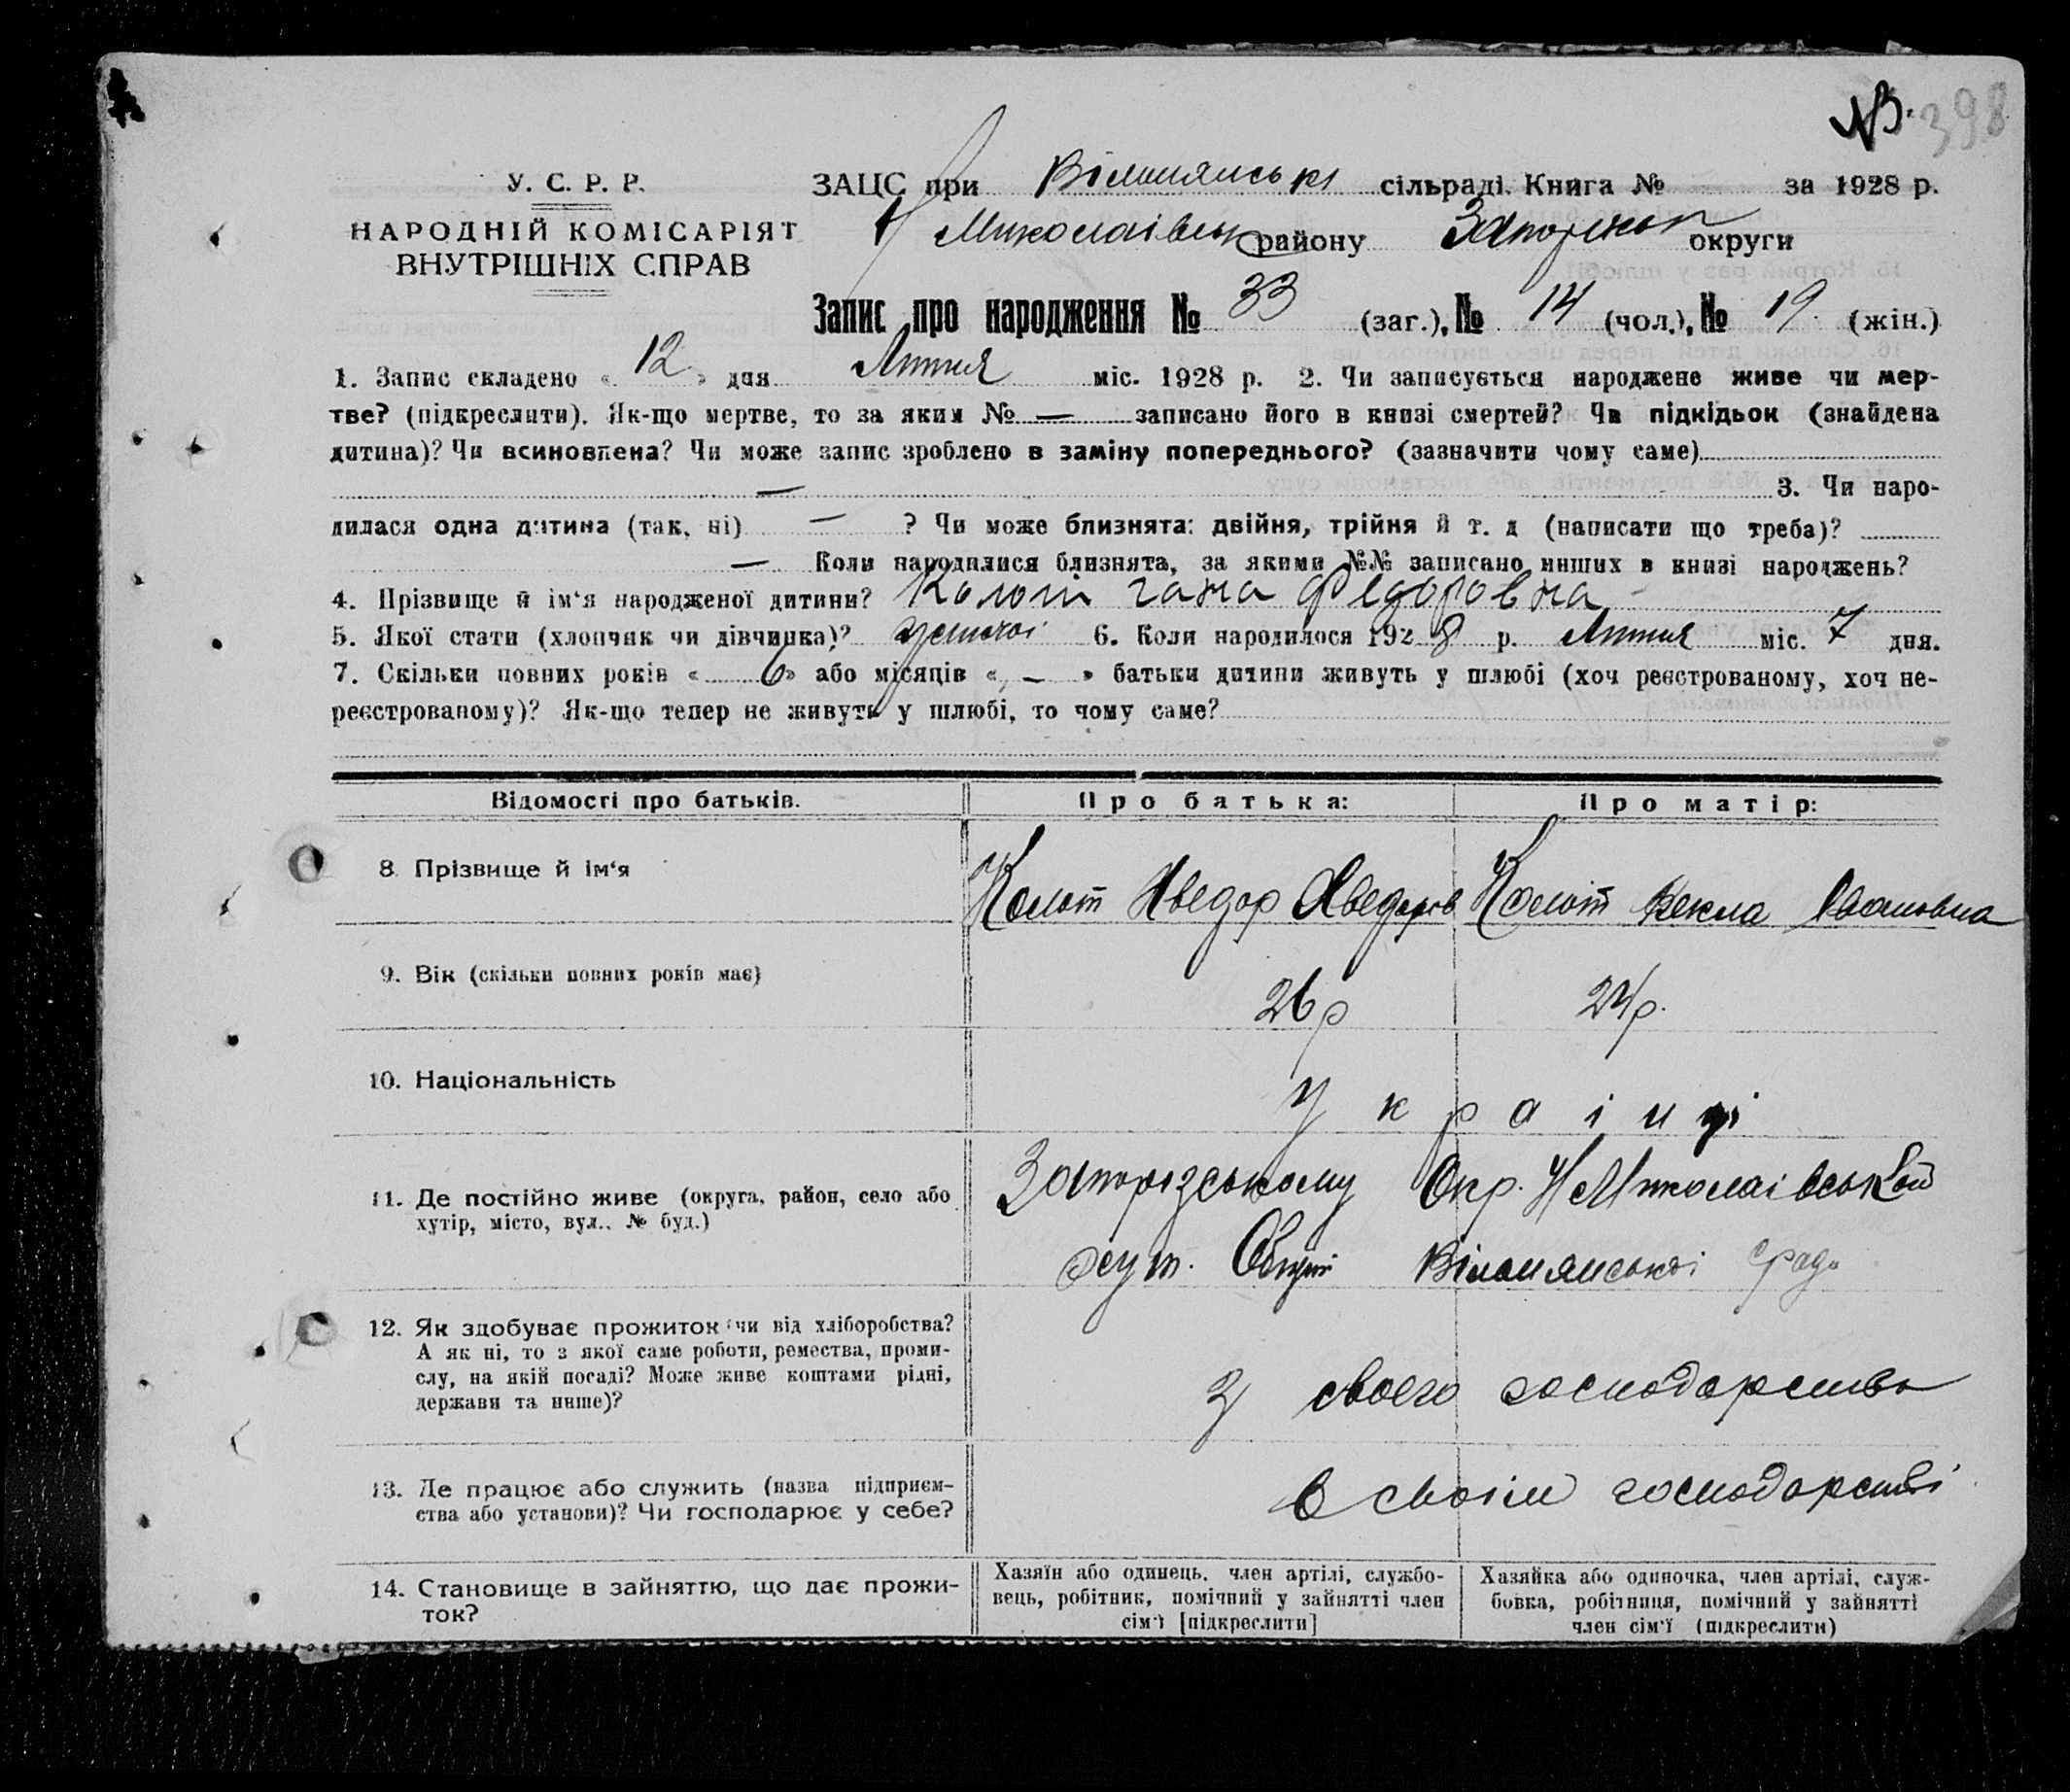 №. 398
У. С. Р. Р.
НАРОДНІЙ КОМІСАРІЯТ
ВНУТРІШНІХ СПРАВ
ЗАЦС при Вільнянські сільраді. Книга № за 1928 р.
Н Миколаівськ району Запоріжськ округи
Запис про народження № 33 (заг.), № 14 (чол.), № 19 (жін.)
1. Запис складено « 12 » дня Липня міс. 1928 р. 2. Чи записується народжене живе чи мер-
тве? (підкреслити). Як-що мертве, то за яким № — записано його в книзі смертей? Чи підкідьок (знайдена
дитина)? Чи всиновлена? Чи може запис зроблено в заміну попереднього? (зазначити чому саме)
— 3. Чи наро-
дилася одна дитина (так, ні) — ? Чи може близнята: двійня, трійня й т. д (написати що треба)?
— Коли народилися близнята, за якими №№ записано инших в книзі народжень?
4. Прізвище й ім‘я народженої дитини? Колот Гана Федоровна
5. Якої стати (хлопчик чи дівчинка)? жіночоі 6. Коли народилося 1928 р. Липня міс. 7 дня.
7. Скільки повних років « 6 » або місяців « — » батьки дитини живуть у шлюбі (хоч реєстрованому, хоч не-
реєстрованому)? Як-що тепер не живуть у шлюбі, то чому саме?
Відомості про батьків. Про батька: Про матір:
8. Прізвище й ім‘я Колот Хведор Хведоров Колот Векла Івановна
9. Вік (скільки повних років має) 26 р 24 р.
10. Національність Украінці
11. Де постійно живе (округа, район, село або
хутір, місто, вул., № буд.)
Запорізському Окр. Н Миколаівськой
хут. Вільнянськоі с/ради
12. Як здобуває прожиток чи від хліборобства?
А як ні, то з якої саме роботи, ремества, проми-
слу, на якій посаді? Може живе коштами рідні,
держави та инше)?
З своего господарства
13. Де працює або служить (назва підприєм-
ства або установи)? Чи господарює у себе?
в своім господарстві
14. Становище в зайняттю, що дає прожи-
ток?
Хазяїн або одинець, член артілі, службо-
вець, робітник, помічний у зайнятті член
сім‘ї [підкреслити]
Хазяйка або одиночка, член артілі, служ-
бовка, робітниця, помічний у зайнятті
член сім‘ї (підкреслити)